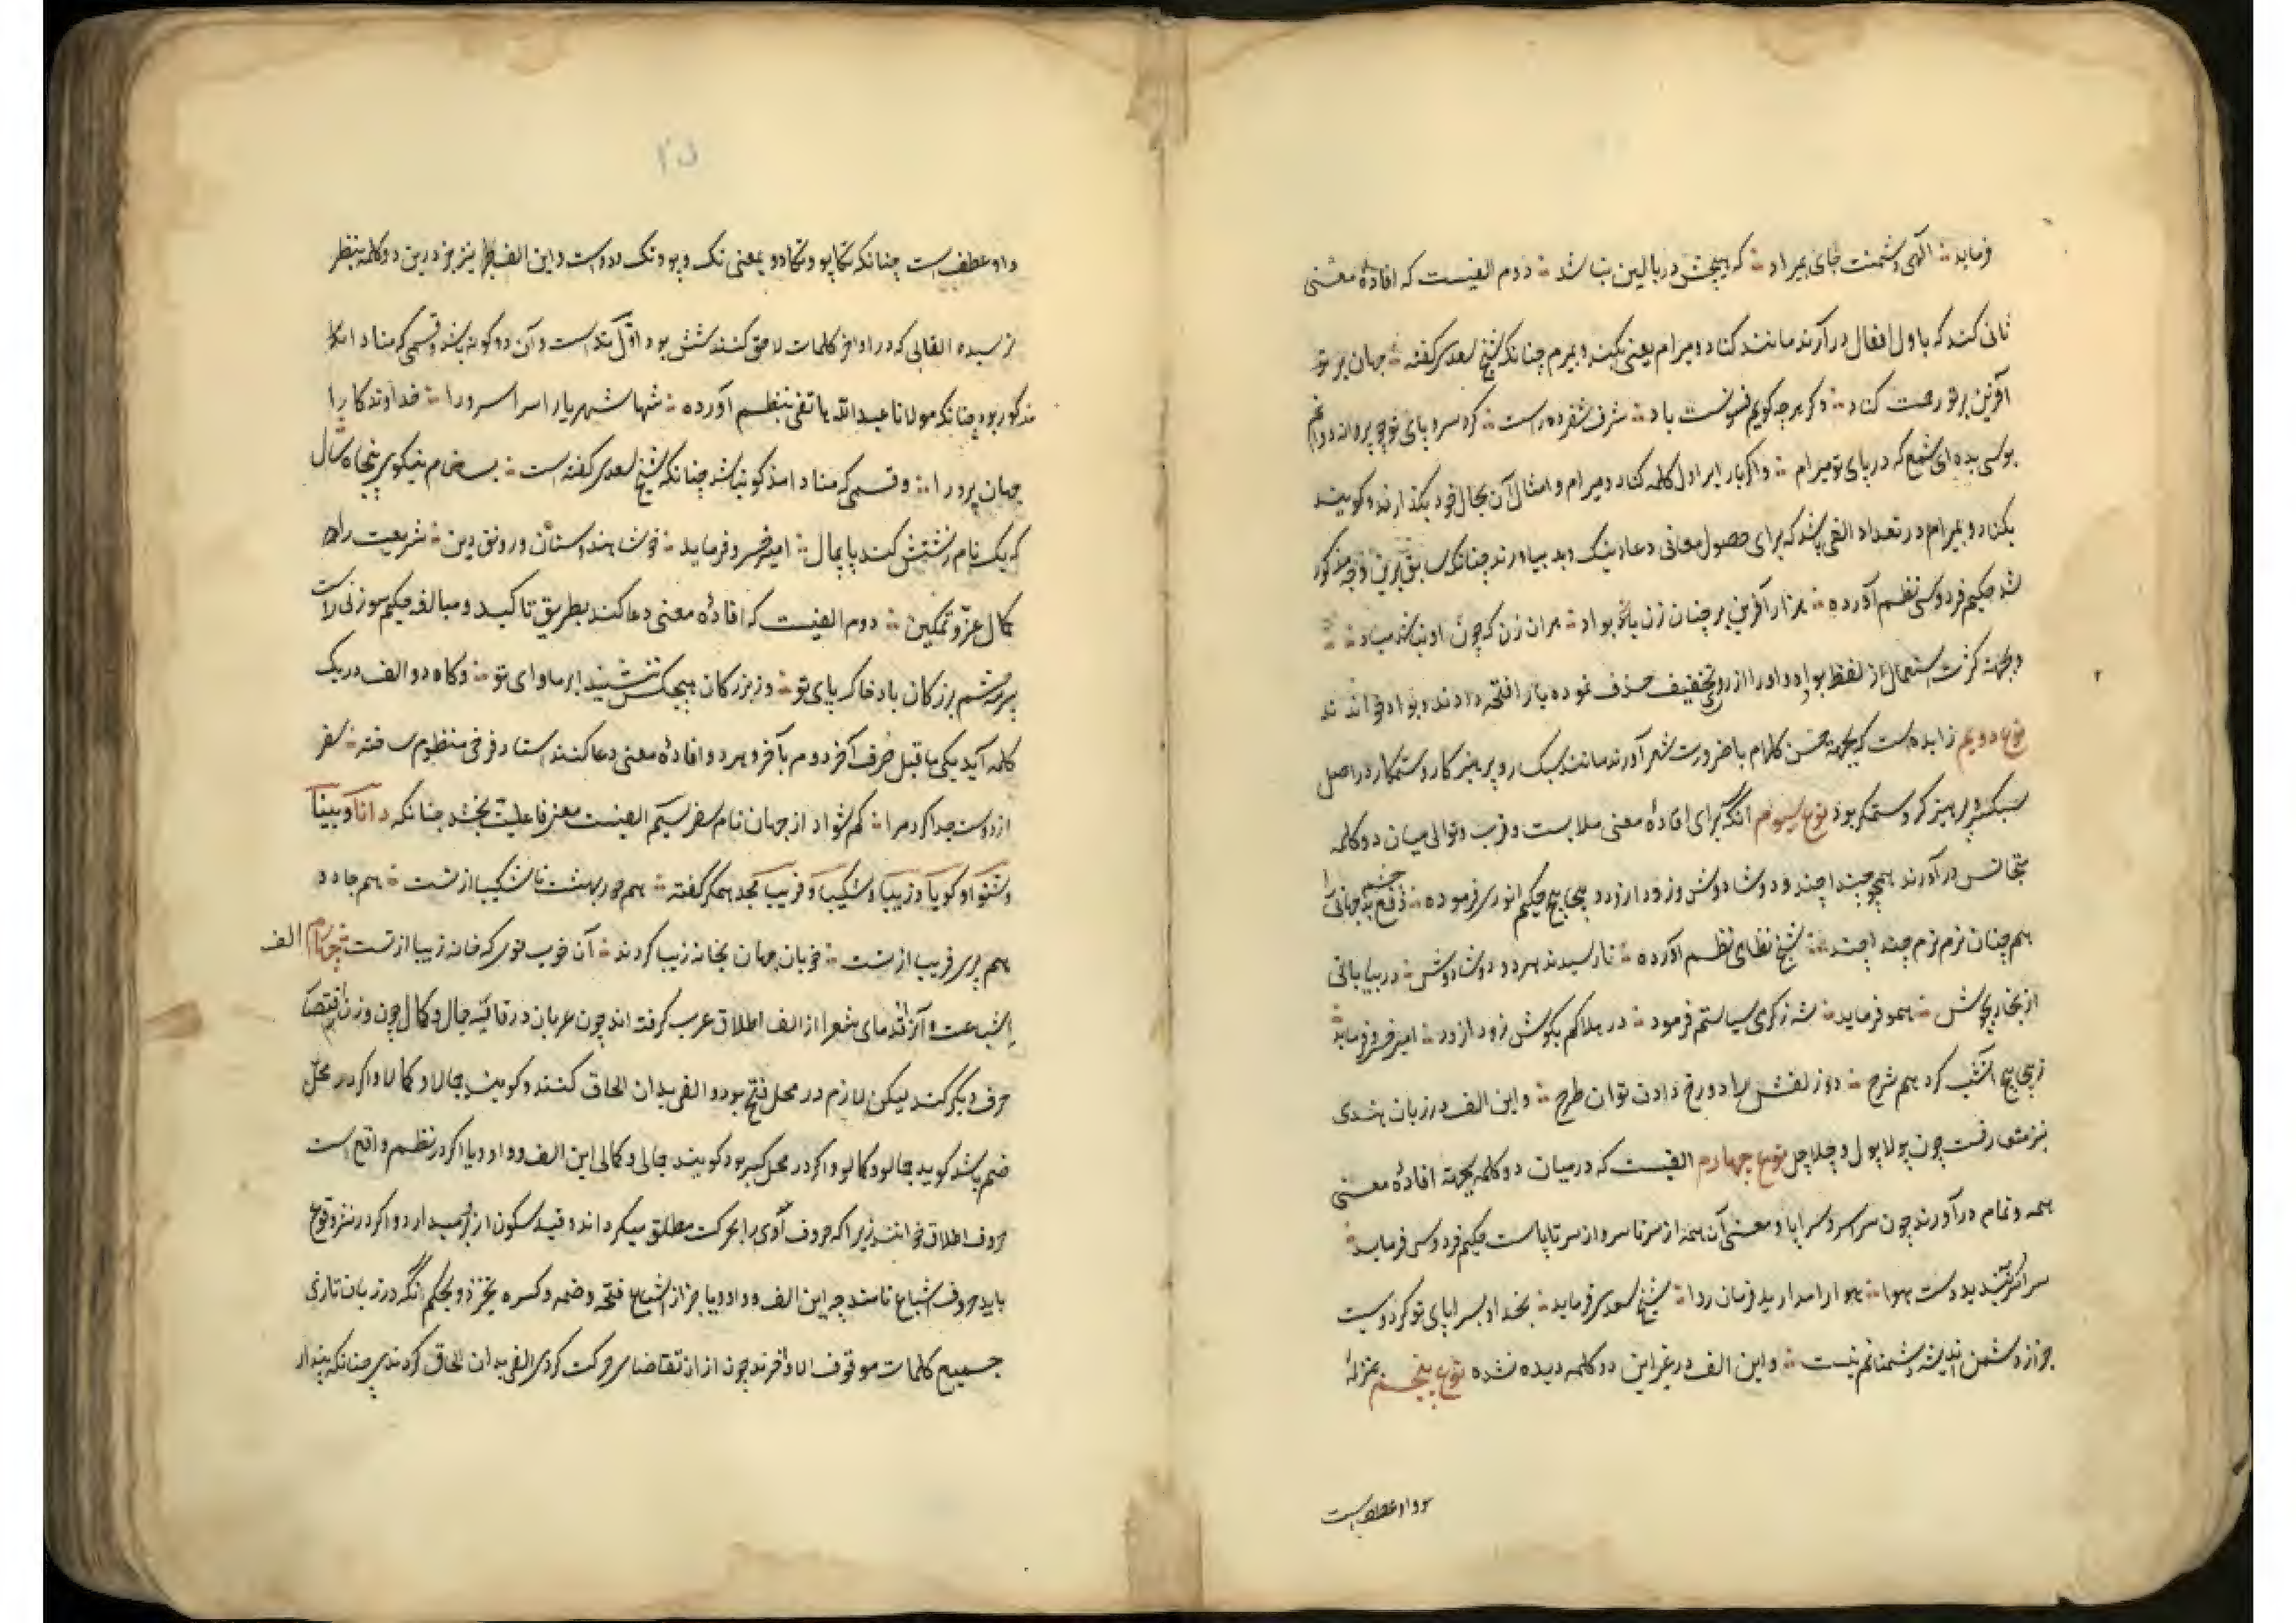 فرماید ؞ الهی دشمنت جای بمیراد ؞ که هیچش در بالین نباشد ؞ دوم الفیست که افادهٔ معنی
ثانی کند که باول افعال در آرند مانند کناد و میرام یعنی بکند و بمیرم چنانکه شیخ سعدی گفته ؞ جهان بر تو
آفرین بر تو رحمت کناد ؞ دگر هرچه گویم فسونست باد ؞ شرف شفروه راست ؞ گرد سر و پای تو چو پروانه دوانم
بوسی بده ای شمع که در پای تو میرام ؞ و اگر با بر اول کلمه کناد و میرام و امثال آن بحال خود بگذارند و گویند
بکناد و بمیرام در تعداد الفی باشد که برای حصول معانی دعا نیک و بد بیاورند چنانکه سابق برین وجه مذکور
شد حکیم فردوسی نظم آورده ؞ هزار آفرین بر چنان زن بواد ؞ هران زن که چون او نباشد مباد ؞
و بجهة کثرت استعمال از لفظ بواد واو را از روی تخفیف حذف نموده با را فتحه دادند و بواد خواندند
نوع دویم زایده است که بجهة حسن کلام یا ضرورت شعر آورند مانند سبک رو پرهیزکار و ستمکار در اصل
سبکرو پرهیزگر و ستمگر بود نوع سیوم آنکه برای افادهٔ معنی ملابست و قرب و توالی میان دو کلمه
متجانس در آورند همچو چندا چند و دوشا دوش و زودا زود و پیچا پیچ حکیم انوری فرموده ؞ چشم بد جهانی را
هم چنان نرم نرم چندا چند ؞ شیخ نظامی نظم آورده ؞ تا رسیدند هر دو دوشا دوش ؞ در بیابانی
از بخار بجوش ؞ همو فرماید ؞ شه ز گرمی سیاستم فرمود ؞ در هلاکم بکوش زودا زود ؞ امیر خسرو فرماید
ز پیچا پیچ شب کرد هم شرح ؞ دو زلفش را دو رخ دادت توان طرح ؞ و این الف در زبان هندی
نیز متعارفست چون پولا پول و چلا چل نوع چهارم الفیست که در میان دو کلمه بجهة افادهٔ معنی
همه و تمام در آورند چون سراسر و سراپا و معنی آن همه از سر تا سر و از سر تا پاست حکیم فردوسی فرماید
سراسر ببندید دست هوا ؞ هوا را مدارید فرمان روا ؞ شیخ سعدی فرماید ؞ بخدا و بسراپای تو کز دوستیت
جز از دشمن اندیشه دشمنانم نیست ؞ و این الف در غیر این دو کلمه دیده نشده نوع پنجم بمنزلهٔ
واو عطف است
واو عطف است چنانکه تکاپو و تکادو بمعنی تک و پو و تک دو است و این الف نیز جز درین دو کلمه بنظر
نرسیده الفاتی که در اواخر کلمات لاحق کنند شش بود اول ندا است و آن دو گونه باشد قسمی که منادا
مذکور بود چنانکه مولانا عبدالله هاتفی بنظم آورده ؞ شها شهریارا سرا سرورا ؞ خداوندگارا
جهان پرورا ؞ و قسمی که منادا مذکور نباشد چنانکه شیخ سعدی گفته است ؞ بسا نام نیکوی پنجاه سال
که یک نام زشتش کند پایمال ؞ امیر خسرو فرماید ؞ خوشا هندوستان و رونق دین ؞ شریعت را
کمال عز و تمکین ؞ دوم الفیست که افادهٔ معنی دعا کند بطریق تاکید و مبالغه حکیم سوزنی راست
چشم بزرگان باد خاک پای تو ؞ وز بزرگان هیچکس ننشیند ابر ماوای تو ؞ و گاه دو الف در یک
کلمه آید یکی ماقبل حرف آخر دوم بآخر و هر دو افادهٔ معنی دعا کنند استاد فرخی منظوم ساخته ؞ سفر
از دوست جدا کرد مرا ؞ کم شواد از جهان نام سفر سیم الفیست معنی فاعلیت بخشد چنانکه دانا و بینا
و شنوا و گویا و زیبا و شکیبا و فریبا مجد همگر گفته ؞ هم حور بهشت ناشکیبا از تست ؞ هم جادو
هم پری فریبا از تست ؞ خوبان جهان بجامه زیبا گردند ؞ آن خوب تویی که جامه زیبا از تست ؞ چهارم الف
اشباعست و آنرا قدمای شعرا از الف اطلاق عرب گرفته اند چون عربان در قافیه جمال و کمال چون وزن اقتضا
حرف دیگر کند لیکن لازم در محل فتح بود و الفی بدان الحاق کنند و گویند جمالا و کمالا و اگر در محل
ضم باشد گویند جمالو و کمالو و اگر در محل کسر بود گویند جمالی و کمالی این الف و واو و یا اگر در نظم واقع است
حروف اطلاق خوانند زیرا که حروف روی را بحرکت مطلق میگرداند و قید سکون ازو برمیدارد و اگر در نثر وقوع
یابد حروف اشباع نامند چه این الف و واو و یا جز از اشباع فتحه و ضمه و کسره نخیزد و بحکم آنکه در زبان تازی
جمیع کلمات موقوف الاواخرند چون ازان تقاضای حرکت کردی الفی بدان الحاق کردندی چنانکه پندار